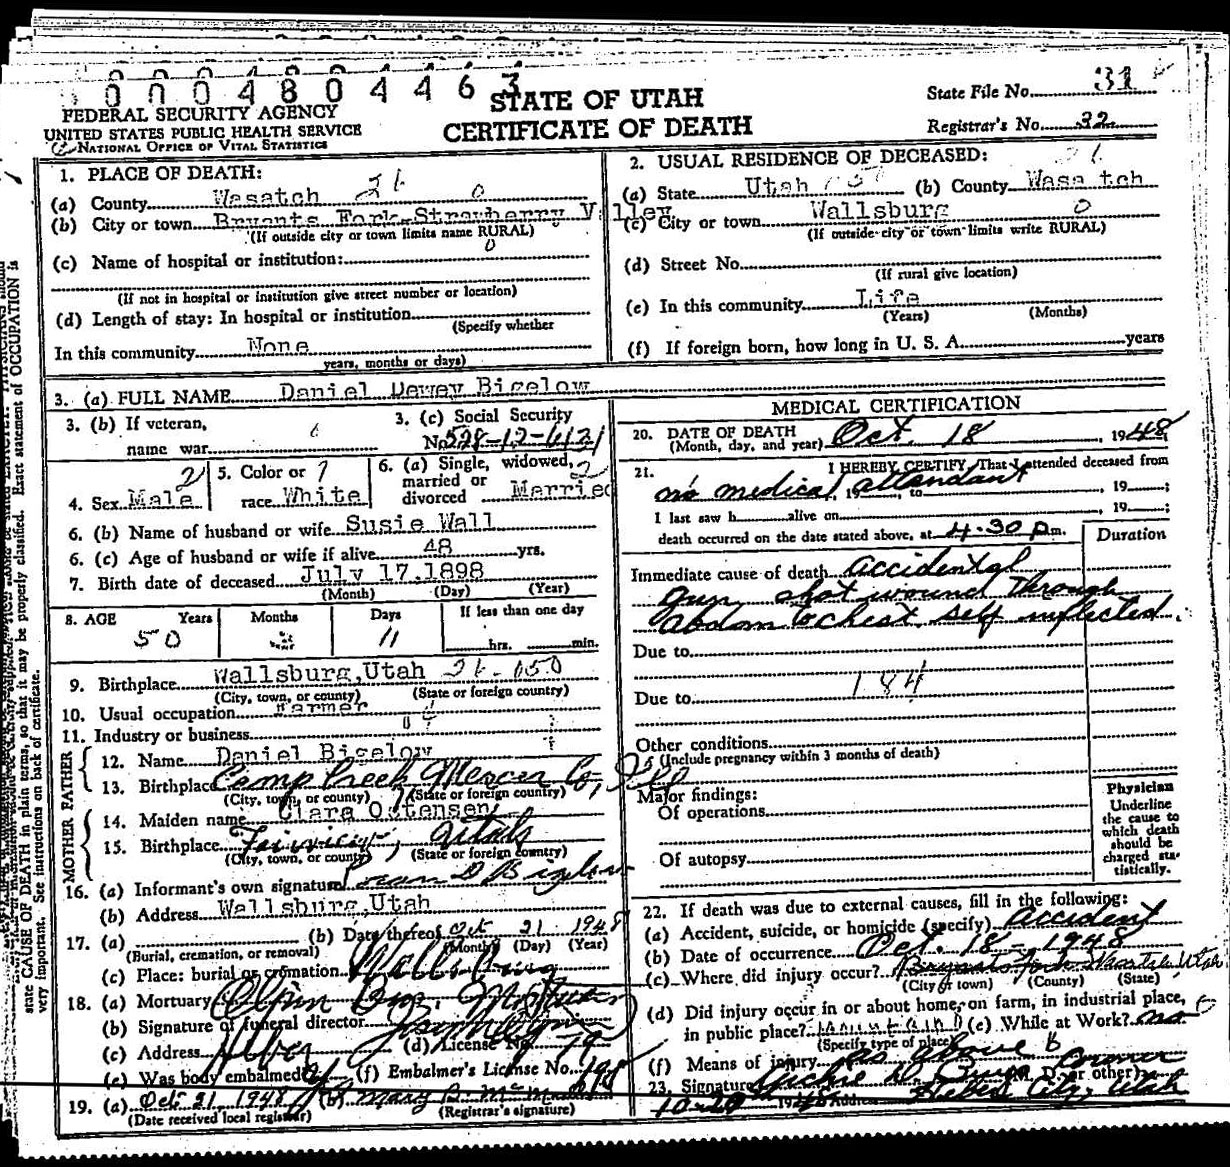 0 0 0 4 8 0 4 4 6 3
FEDERAL SECURITY AGENCY
UNITED STATES PUBLIC HEALTH SERVICE
NATIONAL OFFICE OF VITAL STATISTICS
STATE OF UTAH
CERTIFICATE OF DEATH
State File No. 31
Registrar's No. 32
1. PLACE OF DEATH:
(a) County Wasatch 26 0
(b) City or town Bryants Fork-Strawberry Valley
(If outside city or town limits name RURAL)
(c) Name of hospital or institution: 0
(If not in hospital or institution give street number or location)
(d) Length of stay: In hospital or institution
(Specify whether
In this community None
years, months or days)
2. USUAL RESIDENCE OF DECEASED:
(a) State Utah (b) County Wasatch
(c) City or town Wallsburg 0
(If outside city or town limits write RURAL)
(d) Street No.
(If rural give location)
(e) In this community Life
(Years) (Months)
(f) If foreign born, how long in U. S. A. years
3. (a) FULL NAME Daniel Dewey Bigelow
3. (b) If veteran,
name war
3. (c) Social Security
No. 528-12-6121
4. Sex Male 2
5. Color or
race White
6. (a) Single, widowed,
married or
divorced Married
6. (b) Name of husband or wife Susie Wall
6. (c) Age of husband or wife if alive 48 yrs.
7. Birth date of deceased July 17, 1898
(Month) (Day) (Year)
8. AGE Years Months Days If less than one day
50 11 hrs. min.
9. Birthplace Wallsburg, Utah 26-050
(City, town, or county) (State or foreign country)
10. Usual occupation Farmer
11. Industry or business
FATHER
12. Name Daniel Bigelow
13. Birthplace Camp Creek Mercer Co, Ill
(City, town, or county) (State or foreign country)
MOTHER
14. Maiden name Clara Ostensen
15. Birthplace Fairview, Utah
(City, town, or county) (State or foreign country)
16. (a) Informant's own signature D Bigelow
(b) Address Wallsburg, Utah
17. (a) (b) Date thereof Oct 21 1948
(Burial, cremation, or removal) (Month) (Day) (Year)
(c) Place: burial or cremation Wallsburg
18. (a) Mortuary Olpin Bros. Mortuary
(b) Signature of funeral director
(c) Address Heber (d) License No. 79
(e) Was body embalmed (f) Embalmer's License No.
19. (a) Oct 21 1948 (b) Mary B.
(Date received local registrar) (Registrar's signature)
MEDICAL CERTIFICATION
20. DATE OF DEATH
(Month, day, and year) Oct. 18, 1948
21. I HEREBY CERTIFY, That I attended deceased from
no medical attendant, 19 , to , 19 ;
I last saw h alive on , 19 ;
death occurred on the date stated above, at 4:30 p.m.
Duration
Immediate cause of death accidental
gun shot wound through
Abdom & chest self inflected.
Due to
Due to 184
Other conditions
(Include pregnancy within 3 months of death)
Major findings:
Of operations
Of autopsy
Physician
Underline
the cause to
which death
should be
charged sta-
tistically.
22. If death was due to external causes, fill in the following:
(a) Accident, suicide, or homicide (specify) Accident
(b) Date of occurrence Oct. 18 - 1948
(c) Where did injury occur? Bryants Fork Wasatch, Utah
(City or town) (County) (State)
(d) Did injury occur in or about home, on farm, in industrial place,
in public place? Mountain (e) While at Work? no
(Specify type of place)
(f) Means of injury as above
23. Signature (M. D. or other) Coroner
10-20 1948 Address Heber City, Utah
state CAUSE OF DEATH in plain terms, so that it may be properly classified. Exact statement of OCCUPATION is
very important. See instructions on back of certificate.